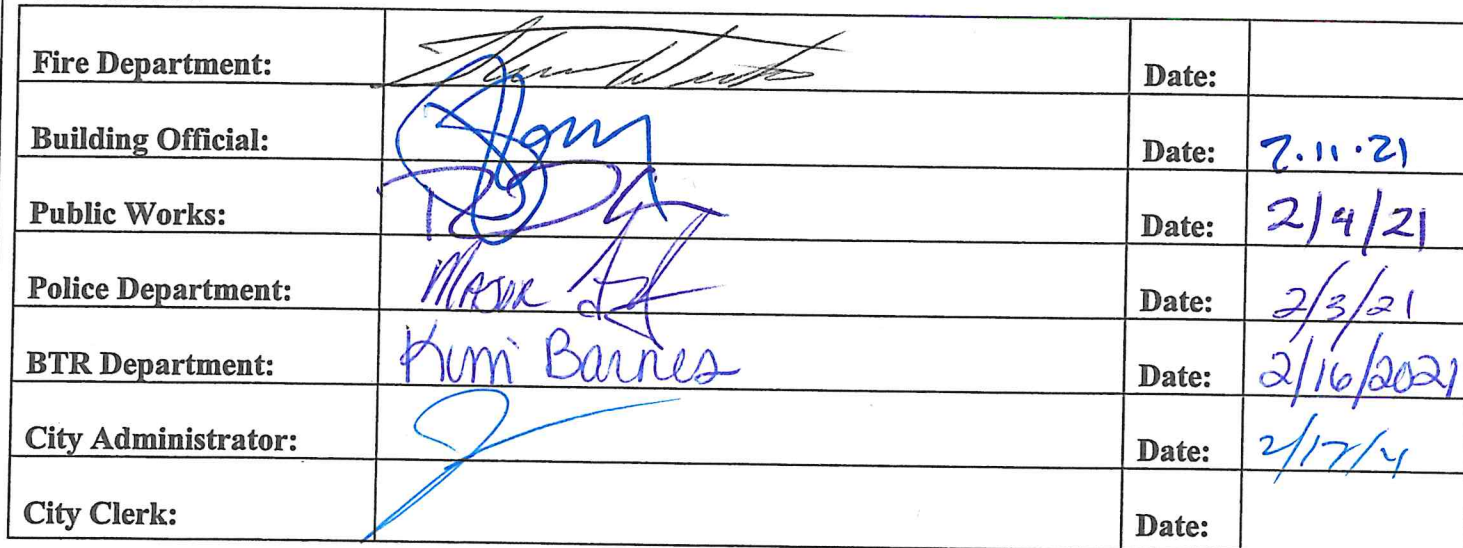 Fire Department: Date:
Building Official: Date: 2.11.21
Public Works: Date: 2/4/21
Police Department: Major Date: 2/3/21
BTR Department: Kim Barnes Date: 2/16/2021
City Administrator: Date:
City Clerk: Date: